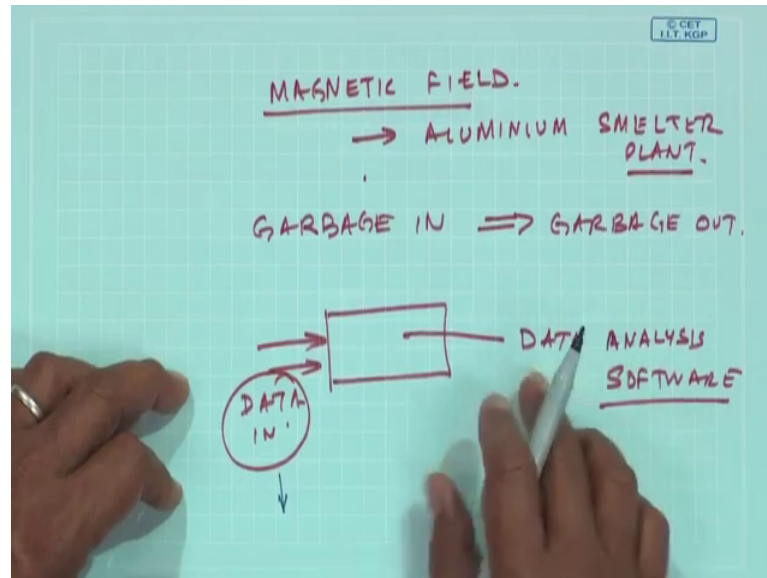 © CET
I.I.T. KGP
MAGNETIC FIELD.
→ ALUMINIUM SMELTER
PLANT.
GARBAGE IN ⇒ GARBAGE OUT.
DATA ANALYSIS
SOFTWARE
DATA
IN